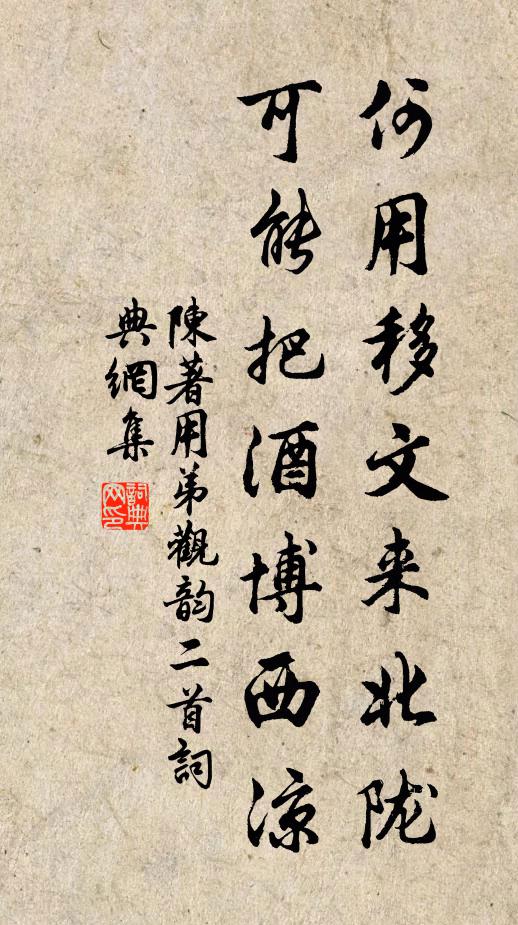 何用移文来北陇
可能把酒博西凉
陳著用弟觀韵二首詞
典網集
詞典
网印